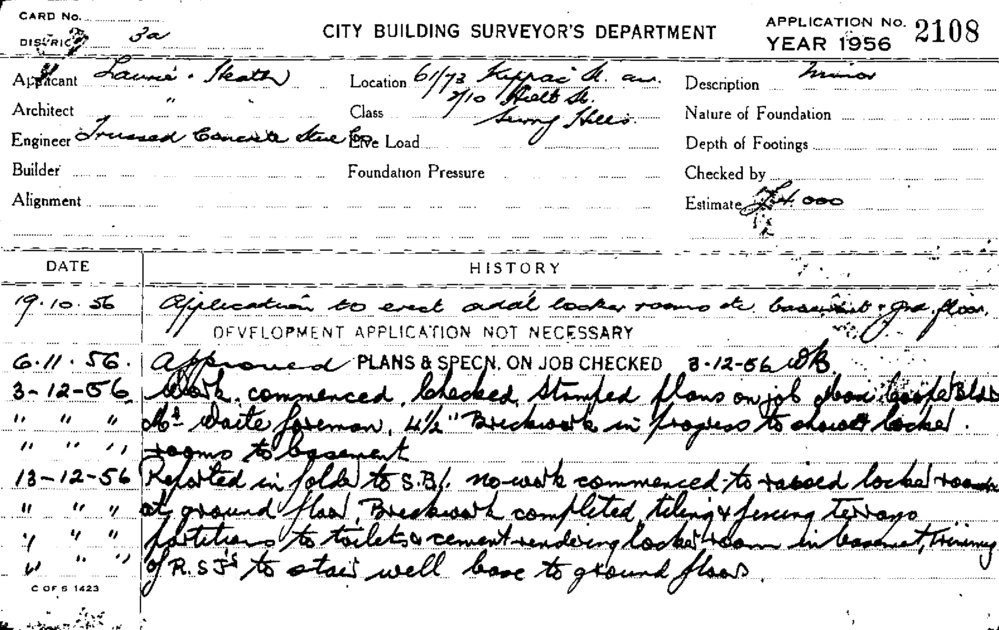 CARD No.
DISTRICT 3a
CITY BUILDING SURVEYOR'S DEPARTMENT
APPLICATION No. 2108
YEAR 1956
Applicant Laurie & Heath
Location 61/73 Kippax St. an.
2/10 Holt St.
Description Minor
Architect "
Class
Surry Hills.
Nature of Foundation
Engineer Trussed Concrete Steel Co
Live Load
Depth of Footings
Builder
Foundation Pressure
Checked by
Alignment
Estimate £4,000
DATE HISTORY
19.10.56 Application to erect addl locker rooms etc. basement & grd. floor.
DEVELOPMENT APPLICATION NOT NECESSARY
6.11.56. Approved PLANS & SPECN. ON JOB CHECKED 3-12-56
3-12-56 Work commenced, Checked, Stamped plans on job
" " " Mr Waite foreman, 4½" Brickwork in progress to shower locker.
" " " rooms to basement
13-12-56 Reported in folder to S.B.I. no work commenced to raised locker room
" " " at ground floor, Brickwork completed, tiling & terrazo
" " " partitions to toilets & cement rendering locker room in basement, trimming
" " " of R.S.J's to stair well base to ground floor.
C OF S 1423